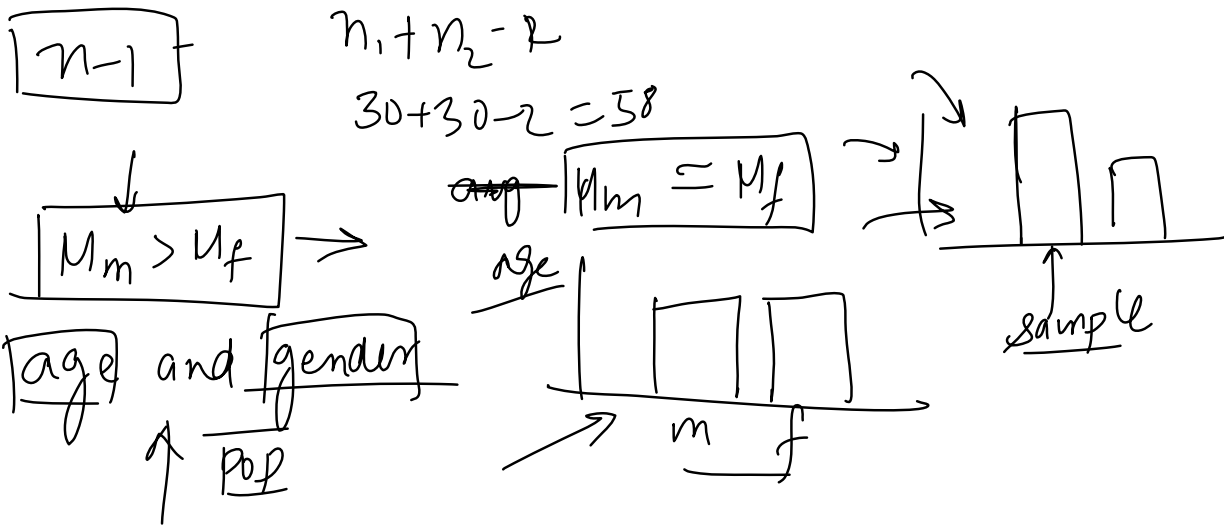 n-1
n₁+n₂-2
30+30-2=58
μm = μf
μm > μf
age
age and gender
pop
m f
sample